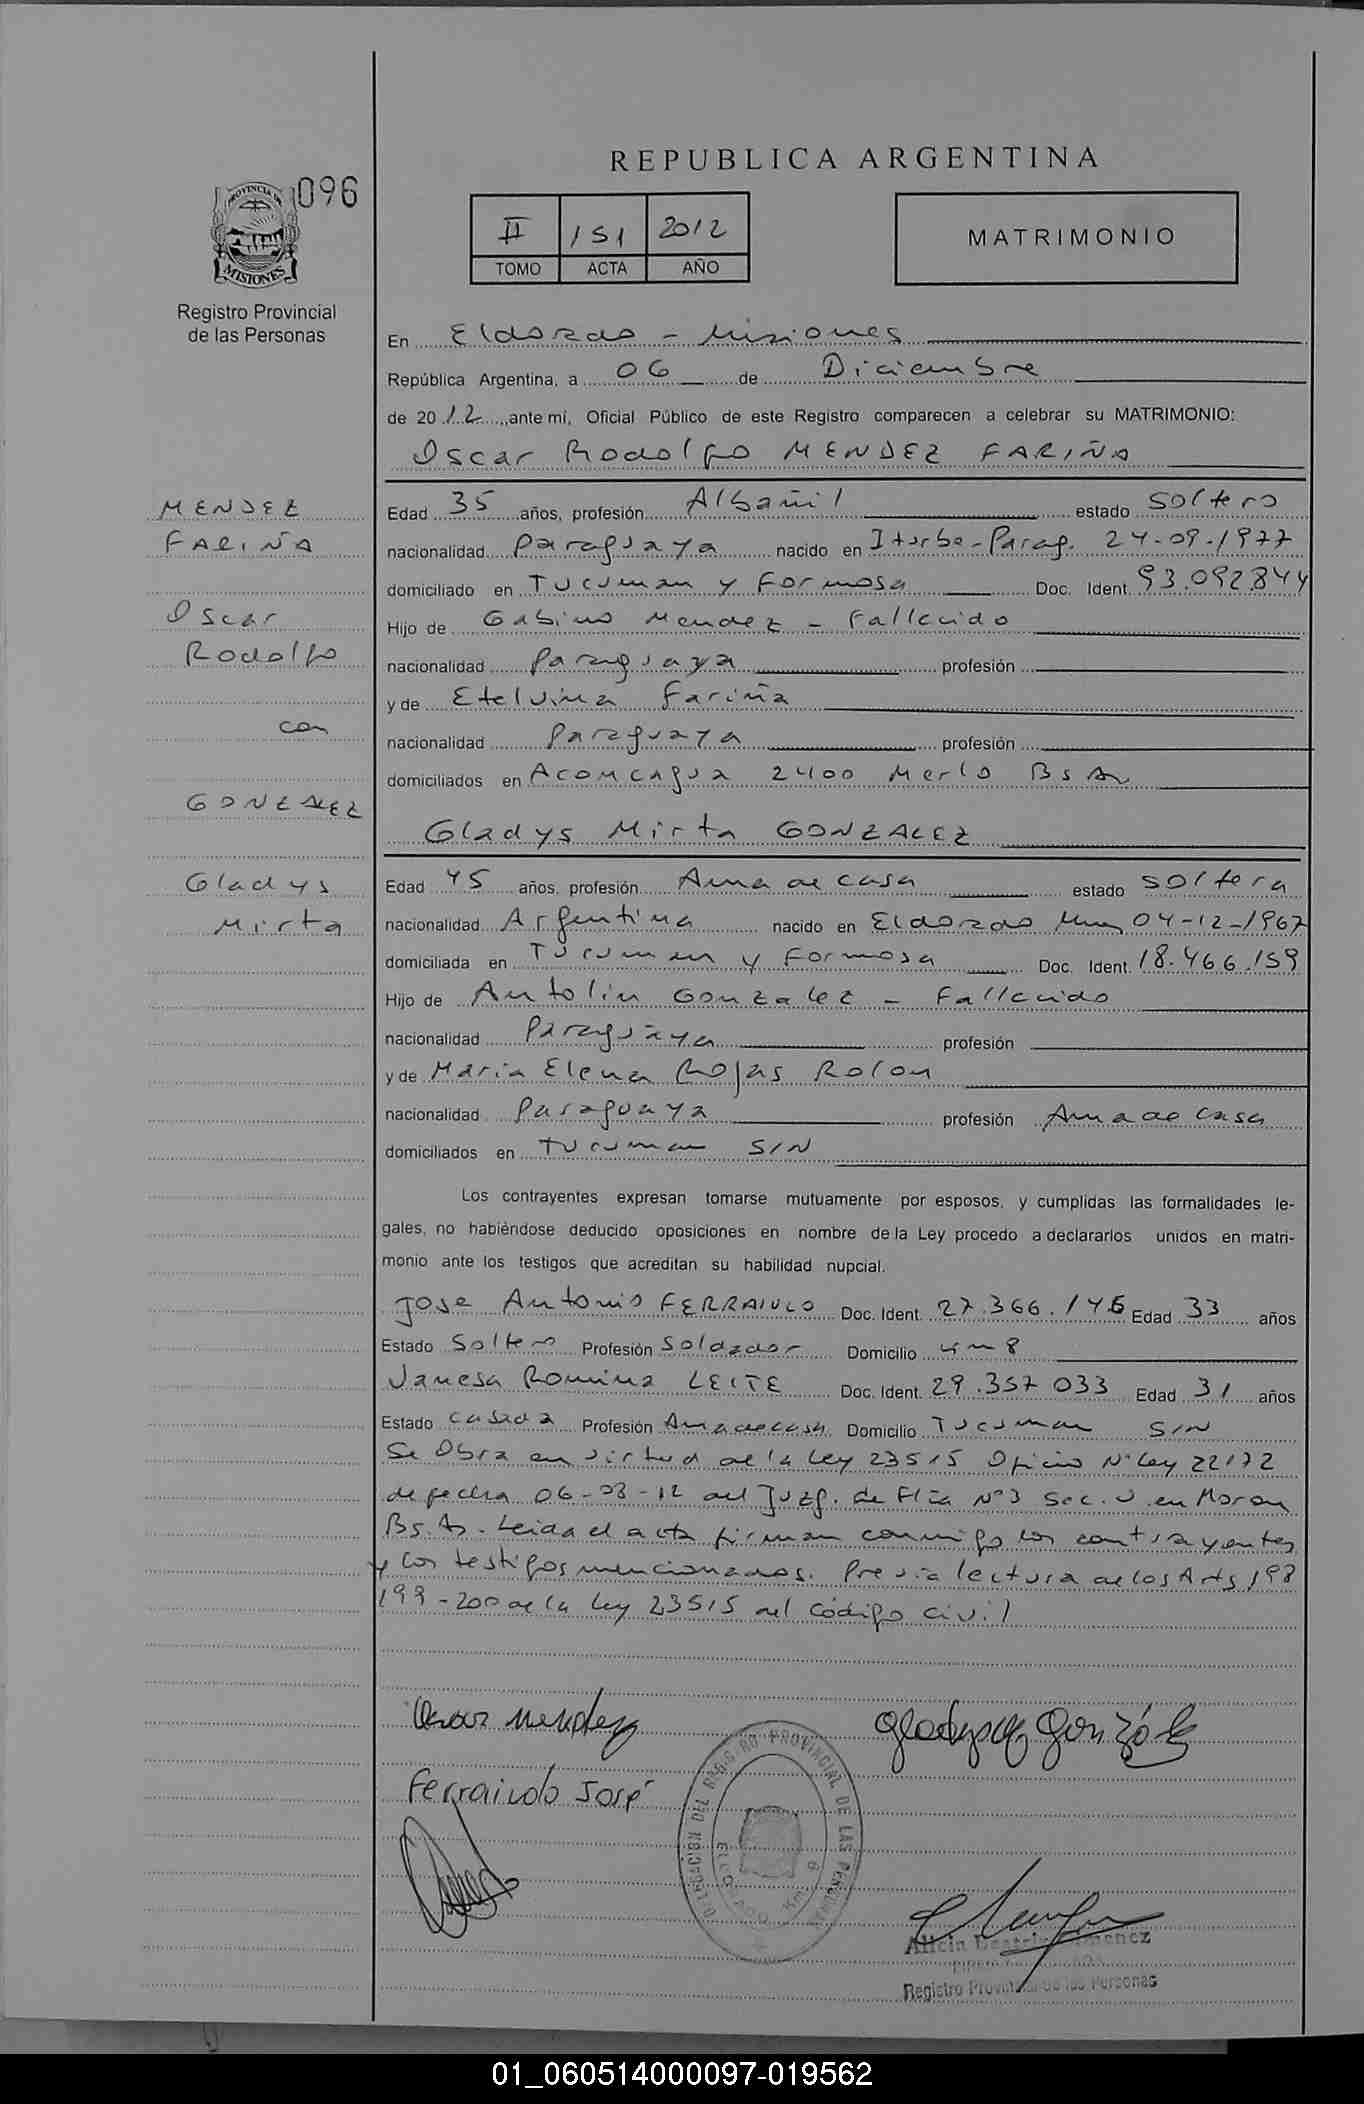 REPUBLICA ARGENTINA
096
PROVINCIA DE
MISIONES
Registro Provincial
de las Personas
II 151 2012
TOMO ACTA AÑO
MATRIMONIO
En Eldorado - Misiones
República Argentina, a 06 de Diciembre
de 2012, ante mí, Oficial Público de este Registro comparecen a celebrar su MATRIMONIO:
Oscar Rodolfo MENDEZ FARIÑA
MENDEZ
FARIÑA
Oscar
Rodolfo
con
GONZALEZ
Gladys
Mirta
Edad 35 años, profesión Albañil estado soltero
nacionalidad Paraguaya nacido en Iturbe-Parag. 24-09-1977
domiciliado en Tucuman y Formosa Doc. Ident. 93.092.844
Hijo de Gabino Mendez - Fallecido
nacionalidad Paraguaya profesión
y de Etelvina Fariña
nacionalidad Paraguaya profesión
domiciliados en Aconcagua 2400 Merlo Bs As
Gladys Mirta GONZALEZ
Edad 45 años, profesión Ama de casa estado soltera
nacionalidad Argentina nacido en Eldorado Mnes 04-12-1967
domiciliada en Tucuman y Formosa Doc. Ident. 18.466.159
Hijo de Antolin Gonzalez - Fallecido
nacionalidad Paraguaya profesión
y de Maria Elena Rojas Rolon
nacionalidad Paraguaya profesión Ama de casa
domiciliados en Tucuman S/N
Los contrayentes expresan tomarse mutuamente por esposos, y cumplidas las formalidades le-
gales, no habiéndose deducido oposiciones en nombre de la Ley procedo a declararlos unidos en matri-
monio ante los testigos que acreditan su habilidad nupcial.
Jose Antonio FERRAIULO Doc. Ident. 27.366.146 Edad 33 años
Estado Soltero Profesión Soldador Domicilio km 8
Vanesa Romina LEITE Doc. Ident. 29.357.033 Edad 31 años
Estado casada Profesión Ama de casa Domicilio Tucuman S/N
Se Obra en virtud de la ley 23515 Oficio N° Ley 22172
de fecha 06-08-12 del Juzg. de Flia N°3 Sec. U. en Moron
Bs. As. Leida el acta firman conmigo los contrayentes
y los testigos mencionados. Previa lectura de los Arts 198
199-200 de la ley 23515 del código civil
Oscar Mendez
Gladys González
Ferraiuolo José
DELEGACION DEL REGISTRO PROVINCIAL DE LAS PERSONAS
ELDORADO Km.
Alicia Beatriz Gimenez
Registro Provincial de las Personas
01_060514000097-019562